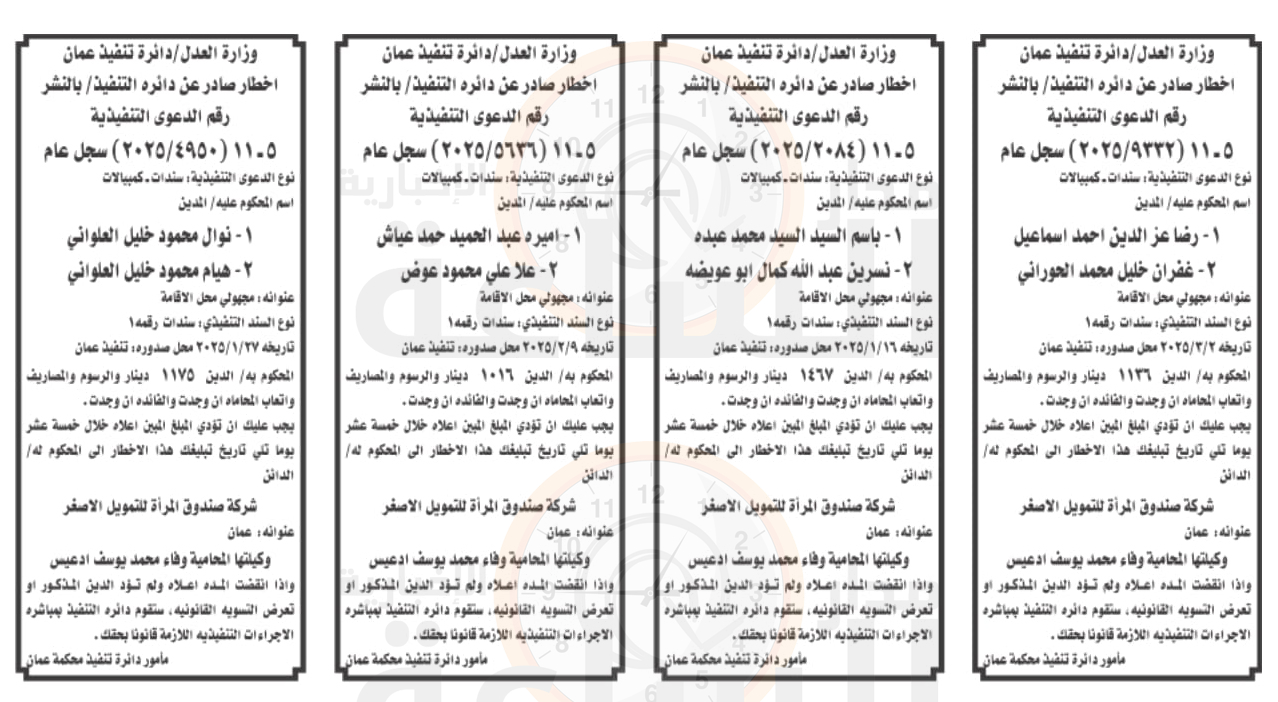 وزارة العدل/دائرة تنفيذ عمان
اخطار صادر عن دائره التنفيذ/ بالنشر
رقم الدعوى التنفيذية
٥ـ١١ (٢٠٢٥/٩٣٣٢) سجل عام
نوع الدعوى التنفيذية: سندات ـ كمبيالات
اسم المحكوم عليه/ المدين
١- رضا عز الدين احمد اسماعيل
٢- غفران خليل محمد الحوراني
عنوانه: مجهولي محل الاقامة
نوع السند التنفيذي: سندات رقمه١
تاريخه ٢٠٢٥/٣/٢ محل صدوره: تنفيذ عمان
المحكوم به/ الدين ١١٣٦ دينار والرسوم والمصاريف
واتعاب المحاماه ان وجدت والفائده ان وجدت.
يجب عليك ان تؤدي المبلغ المبين اعلاه خلال خمسة عشر
يوما تلي تاريخ تبليغك هذا الاخطار الى المحكوم له/
الدائن
شركة صندوق المرأة للتمويل الاصغر
عنوانه: عمان
وكيلتها المحامية وفاء محمد يوسف ادعيس
واذا انقضت المده اعلاه ولم تؤد الدين المذكور او
تعرض التسويه القانونيه، ستقوم دائره التنفيذ بمباشره
الاجراءات التنفيذيه اللازمة قانونا بحقك.
مأمور دائرة تنفيذ محكمة عمان
وزارة العدل/دائرة تنفيذ عمان
اخطار صادر عن دائره التنفيذ/ بالنشر
رقم الدعوى التنفيذية
٥ـ١١ (٢٠٢٥/٢٠٨٤) سجل عام
نوع الدعوى التنفيذية: سندات ـ كمبيالات
اسم المحكوم عليه/ المدين
١- باسم السيد السيد محمد عبده
٢- نسرين عبد الله كمال ابو عويضه
عنوانه: مجهولي محل الاقامة
نوع السند التنفيذي: سندات رقمه١
تاريخه ٢٠٢٥/١/١٦ محل صدوره: تنفيذ عمان
المحكوم به/ الدين ١٤٦٧ دينار والرسوم والمصاريف
واتعاب المحاماه ان وجدت والفائده ان وجدت.
يجب عليك ان تؤدي المبلغ المبين اعلاه خلال خمسة عشر
يوما تلي تاريخ تبليغك هذا الاخطار الى المحكوم له/
الدائن
شركة صندوق المرأة للتمويل الاصغر
عنوانه: عمان
وكيلتها المحامية وفاء محمد يوسف ادعيس
واذا انقضت المده اعلاه ولم تؤد الدين المذكور او
تعرض التسويه القانونيه، ستقوم دائره التنفيذ بمباشره
الاجراءات التنفيذيه اللازمة قانونا بحقك.
مأمور دائرة تنفيذ محكمة عمان
وزارة العدل/دائرة تنفيذ عمان
اخطار صادر عن دائره التنفيذ/ بالنشر
رقم الدعوى التنفيذية
٥ـ١١ (٢٠٢٥/٥٦٣٦) سجل عام
نوع الدعوى التنفيذية: سندات ـ كمبيالات
اسم المحكوم عليه/ المدين
١- اميره عبد الحميد حمد عياش
٢- علا علي محمود عوض
عنوانه: مجهولي محل الاقامة
نوع السند التنفيذي: سندات رقمه١
تاريخه ٢٠٢٥/٢/٩ محل صدوره: تنفيذ عمان
المحكوم به/ الدين ١٠١٦ دينار والرسوم والمصاريف
واتعاب المحاماه ان وجدت والفائده ان وجدت.
يجب عليك ان تؤدي المبلغ المبين اعلاه خلال خمسة عشر
يوما تلي تاريخ تبليغك هذا الاخطار الى المحكوم له/
الدائن
شركة صندوق المرأة للتمويل الاصغر
عنوانه: عمان
وكيلتها المحامية وفاء محمد يوسف ادعيس
واذا انقضت المده اعلاه ولم تؤد الدين المذكور او
تعرض التسويه القانونيه، ستقوم دائره التنفيذ بمباشره
الاجراءات التنفيذيه اللازمة قانونا بحقك.
مأمور دائرة تنفيذ محكمة عمان
وزارة العدل/دائرة تنفيذ عمان
اخطار صادر عن دائره التنفيذ/ بالنشر
رقم الدعوى التنفيذية
٥ـ١١ (٢٠٢٥/٤٩٥٠) سجل عام
نوع الدعوى التنفيذية: سندات ـ كمبيالات
اسم المحكوم عليه/ المدين
١- نوال محمود خليل العلواني
٢- هيام محمود خليل العلواني
عنوانه: مجهولي محل الاقامة
نوع السند التنفيذي: سندات رقمه١
تاريخه ٢٠٢٥/١/٢٧ محل صدوره: تنفيذ عمان
المحكوم به/ الدين ١١٧٥ دينار والرسوم والمصاريف
واتعاب المحاماه ان وجدت والفائده ان وجدت.
يجب عليك ان تؤدي المبلغ المبين اعلاه خلال خمسة عشر
يوما تلي تاريخ تبليغك هذا الاخطار الى المحكوم له/
الدائن
شركة صندوق المرأة للتمويل الاصغر
عنوانه: عمان
وكيلتها المحامية وفاء محمد يوسف ادعيس
واذا انقضت المده اعلاه ولم تؤد الدين المذكور او
تعرض التسويه القانونيه، ستقوم دائره التنفيذ بمباشره
الاجراءات التنفيذيه اللازمة قانونا بحقك.
مأمور دائرة تنفيذ محكمة عمان